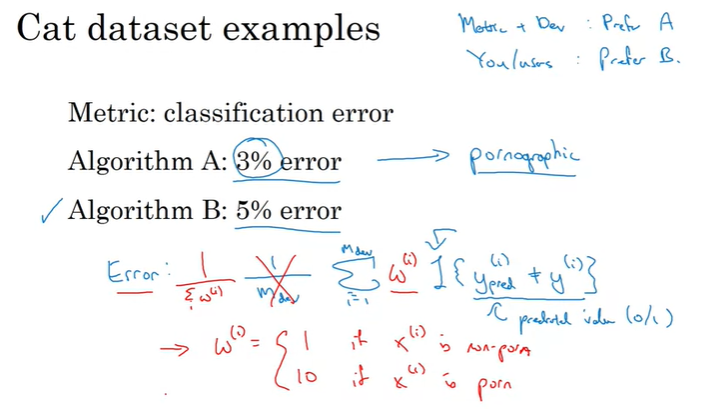 Cat dataset examples
Metric + Dev : Prefer A
You/users : Prefer B.
Metric: classification error
Algorithm A: 3% error → pornographic
✓ Algorithm B: 5% error
Error: 1/Σw^(i) 1/m_dev Σ_{i=1}^{m_dev} w^(i) I{y_pred^(i) ≠ y^(i)}
predicted value (0/1)
→ w^(i) = { 1 if x^(i) is non-porn
10 if x^(i) is porn